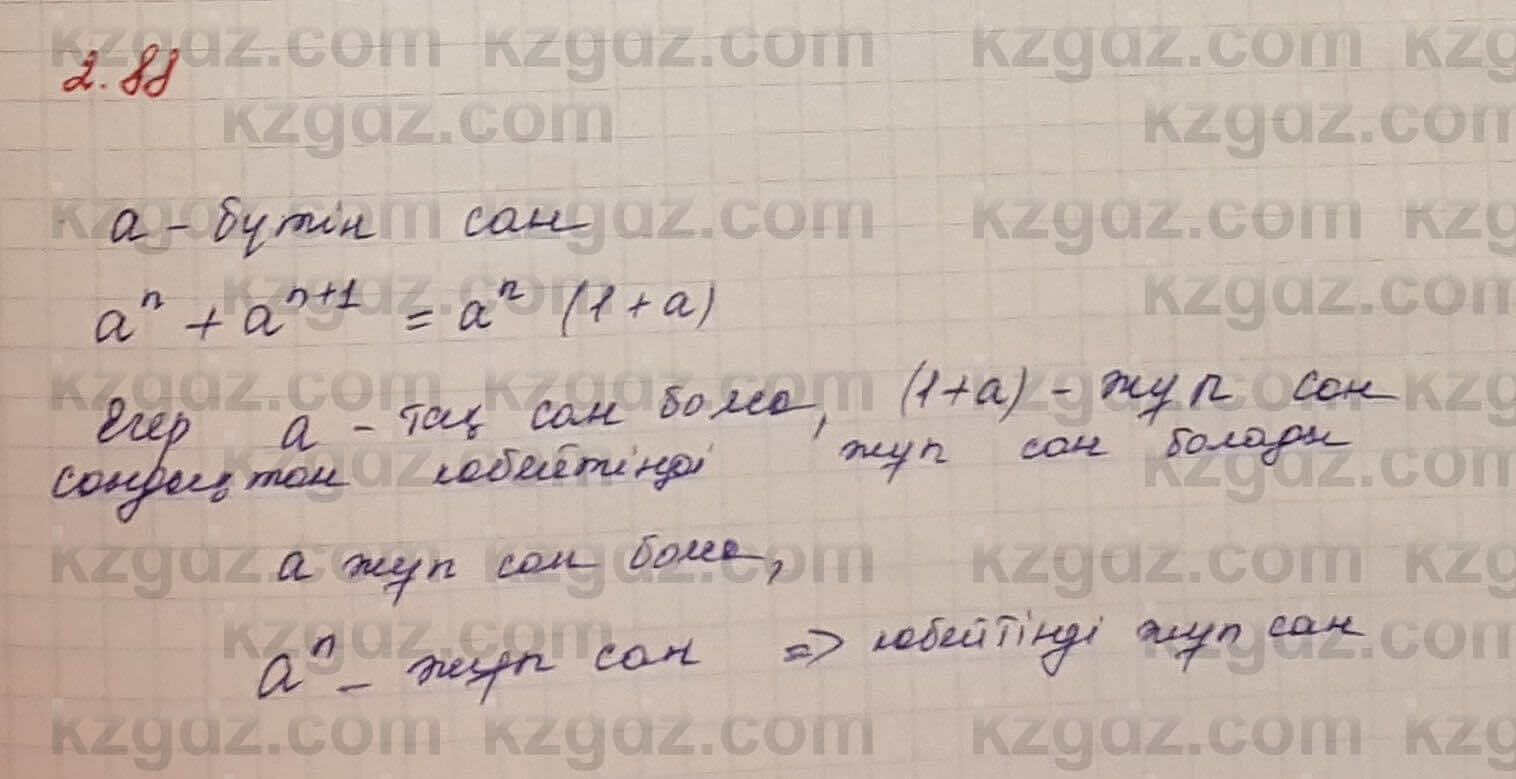 2.88
a - бүтін сан
aⁿ + aⁿ⁺¹ = aⁿ (1+a)
Егер a - тақ сан болса, (1+a) - жұп сан
сондықтан көбейтінді жұп сан болады
a жұп сан болса,
aⁿ - жұп сан => көбейтінді жұп сан
kzgdz.com